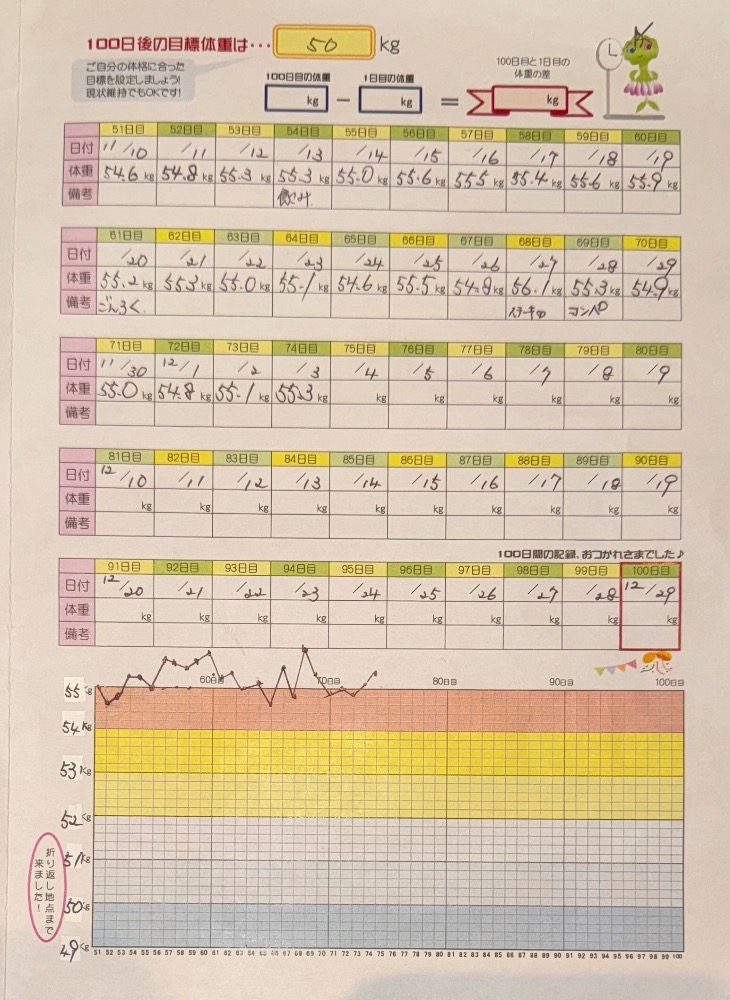 100日後の目標体重は・・・ 50 kg
ご自分の体格に合った
目標を設定しましょう!
現状維持でもOKです!
100日目の体重 1日目の体重 100日目と1日目の
体重の差
kg − kg = kg
51日目 52日目 53日目 54日目 55日目 56日目 57日目 58日目 59日目 60日目
日付 11/10 /11 /12 /13 /14 /15 /16 /17 /18 /19
体重 54.6kg 54.8kg 55.3kg 55.3kg 55.0kg 55.6kg 55.5kg 55.4kg 55.6kg 55.9kg
備考 飲み
61日目 62日目 63日目 64日目 65日目 66日目 67日目 68日目 69日目 70日目
日付 /20 /21 /22 /23 /24 /25 /26 /27 /28 /29
体重 55.2kg 55.3kg 55.0kg 55.1kg 54.6kg 55.5kg 54.8kg 56.1kg 55.3kg 54.9kg
備考 ごんろく コンペ
71日目 72日目 73日目 74日目 75日目 76日目 77日目 78日目 79日目 80日目
日付 11/30 12/1 /2 /3 /4 /5 /6 /7 /8 /9
体重 55.0kg 54.8kg 55.1kg 55.3kg kg kg kg kg kg kg
備考
81日目 82日目 83日目 84日目 85日目 86日目 87日目 88日目 89日目 90日目
日付 12/10 /11 /12 /13 /14 /15 /16 /17 /18 /19
体重 kg kg kg kg kg kg kg kg kg kg
備考
100日間の記録、おつかれさまでした♪
91日目 92日目 93日目 94日目 95日目 96日目 97日目 98日目 99日目 100日目
日付 12/20 /21 /22 /23 /24 /25 /26 /27 /28 12/29
体重 kg kg kg kg kg kg kg kg kg kg
備考
60日目 70日目 80日目 90日目 100日目
55kg
54kg
53kg
52kg
51kg
50kg
49kg
折り返し地点まで
来ました!
51 52 53 54 55 56 57 58 59 60 61 62 63 64 65 66 67 68 69 70 71 72 73 74 75 76 77 78 79 80 81 82 83 84 85 86 87 88 89 90 91 92 93 94 95 96 97 98 99 100